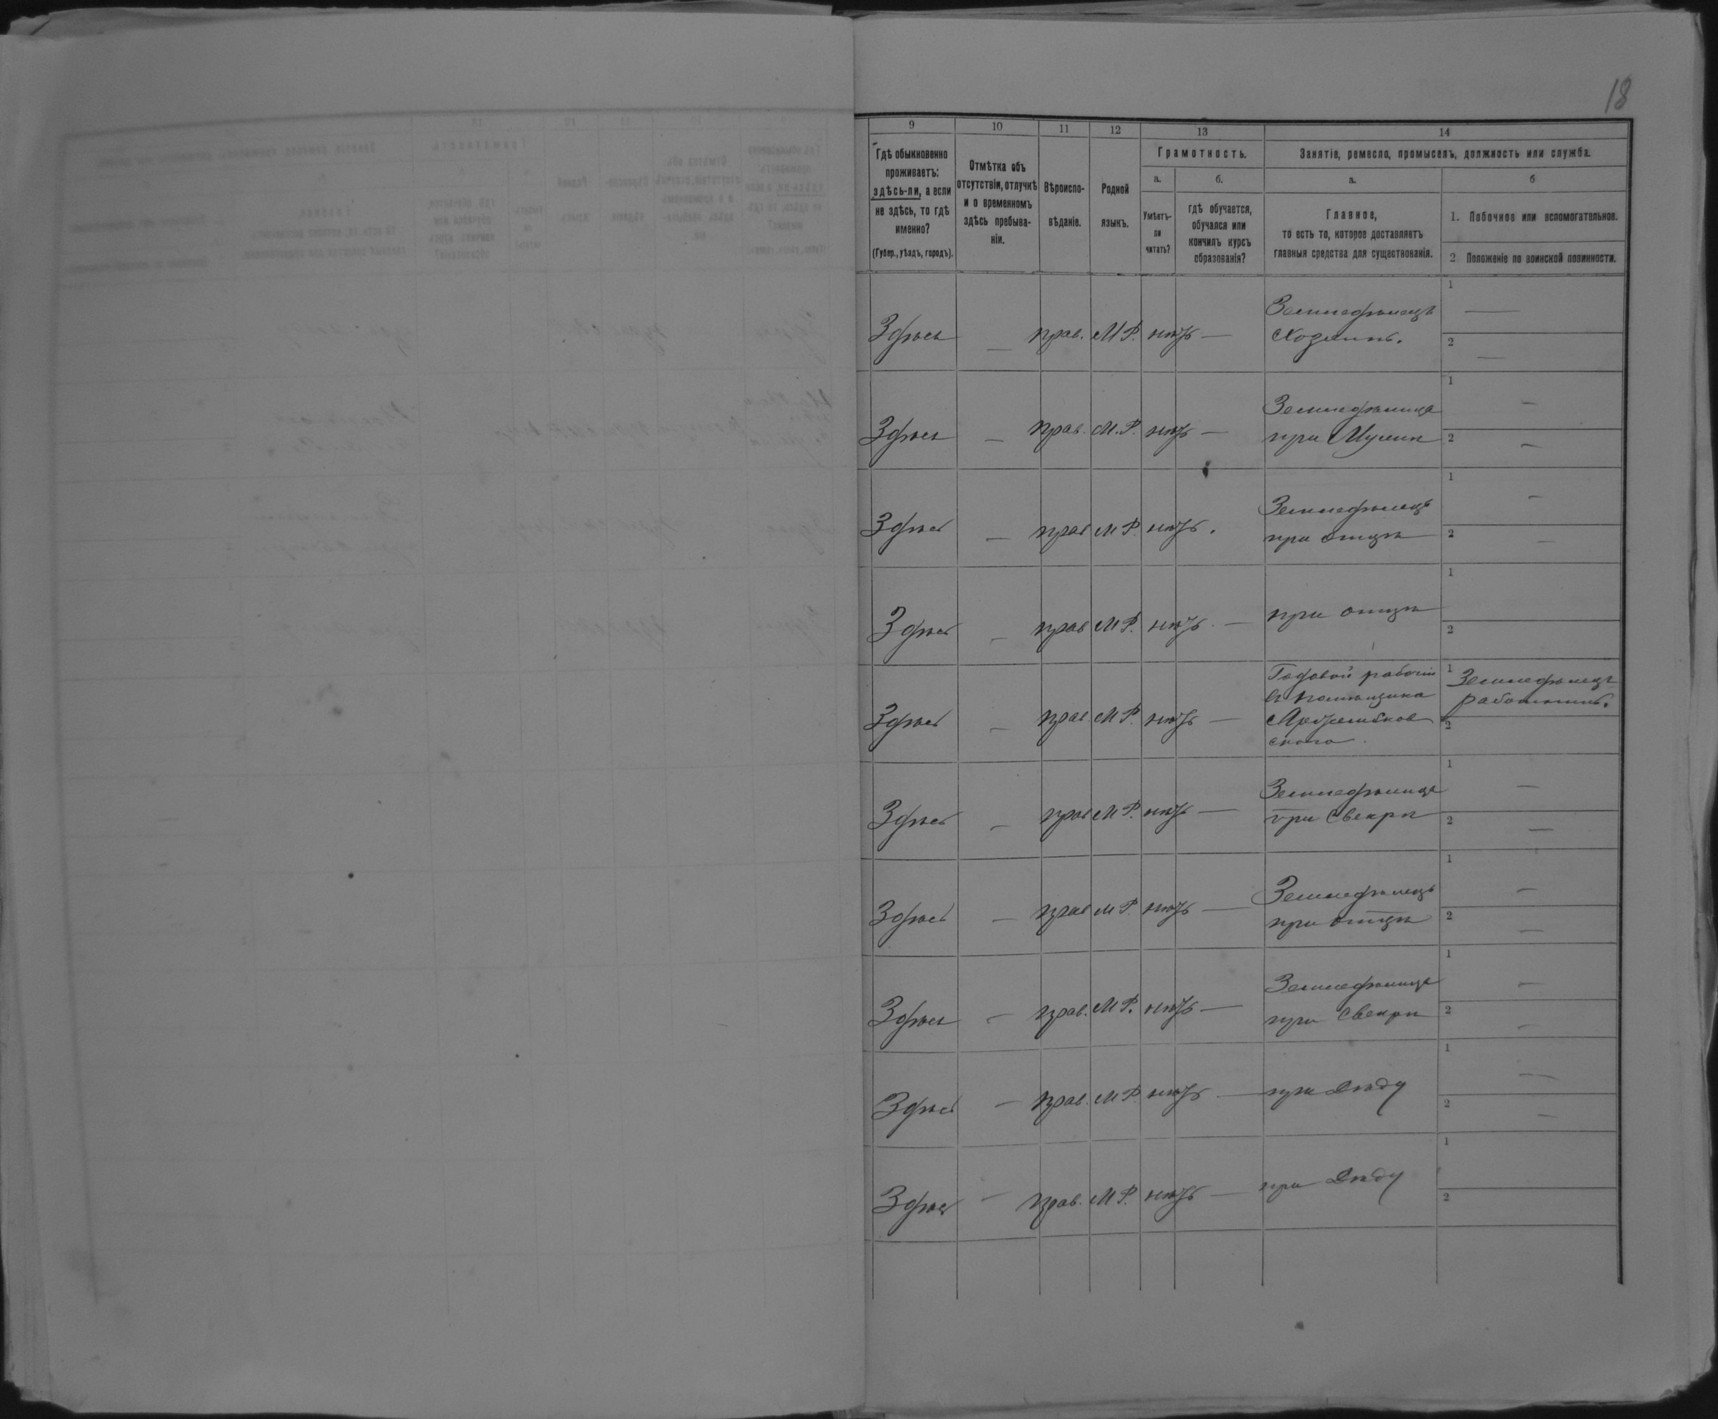 18
9 10 11 12 13 14
Гдѣ обыкновенно
проживаетъ:
здѣсь-ли, а если
не здѣсь, то гдѣ
именно?
(Губер., уѣздъ, городъ).
Отмѣтка объ
отсутствіи, отлучкѣ
и о временномъ
здѣсь пребыва-
ніи.
Вѣроиспо-
вѣданіе.
Родной
языкъ.
Грамотность.
а.
Умѣетъ-
ли
читать?
б.
гдѣ обучается,
обучался или
кончилъ курсъ
образованія?
Занятіе, ремесло, промыселъ, должность или служба.
а.
Главное,
то есть то, которое доставляетъ
главныя средства для существованія.
б
1. Побочное или вспомогательное.
2 Положеніе по воинской повинности.
Здѣсь — прав. М.Р. нѣтъ — Земледѣлецъ
Хозяинъ.
1 —
2 —
Здѣсь — прав. М.Р. нѣтъ — Земледѣлица
при Мужѣ
1 —
2 —
Здѣсь — прав М.Р. нѣтъ. Земледѣлецъ
при отцѣ
1 —
2 —
Здѣсь — прав М.Р. нѣтъ — при отцѣ
1
2
Здѣсь — прав М.Р. нѣтъ — Годовой рабочій
помѣщика
скаго
1 Земледѣлецъ
работникъ.
2
Здѣсь — прав М.Р. нѣтъ — Земледѣлица
при Свекрѣ
1 —
2 —
Здѣсь — прав М.Р. нѣтъ — Земледѣлецъ
при отцѣ
1 —
2 —
Здѣсь — прав. М.Р. нѣтъ — Земледѣлица
при Свекрѣ
1 —
2 —
Здѣсь — прав. М.Р. нѣтъ — при Дѣду
1 —
2 —
Здѣсь — прав. М.Р. нѣтъ — при Дѣду
1
2